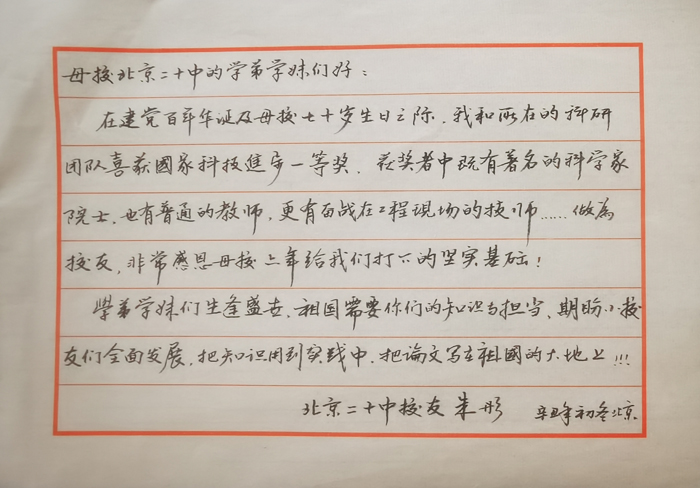 母校北京二十中的学弟学妹们好：
在建党百年华诞及母校七十岁生日之际，我和所在的科研
团队喜获國家科技進步一等奖，获奖者中既有著名的科学家
院士，也有普通的教师，更有奋战在工程现场的技师……做為
校友，非常感恩母校三年给我们打下的坚实基础！
學弟学妹们生逢盛世，祖国需要你们的知识与担当，期盼小校
友们全面发展，把知识用到实践中，把论文写在祖國的大地上!!!
北京二十中校友 朱彤 辛丑年初冬北京